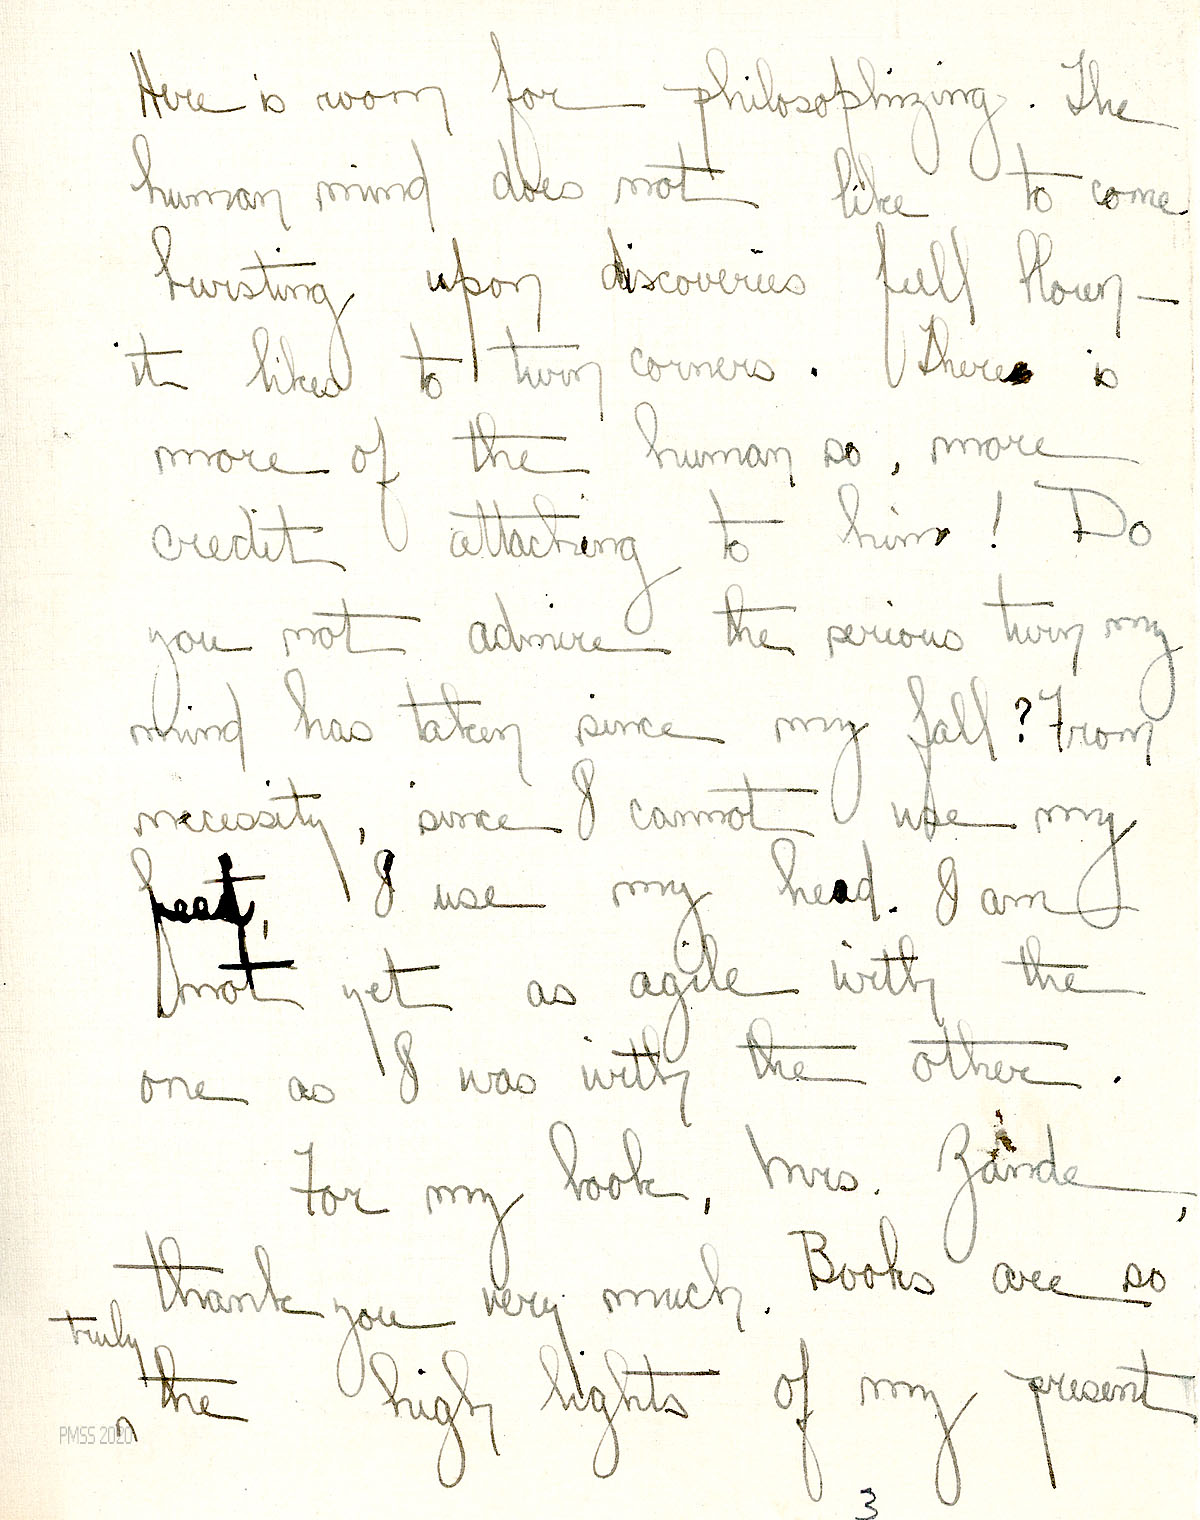 Here is room for philosophizing. The
human mind does not like to come
bursting upon discoveries full blown —
it likes to turn corners. There is
more of the human so, more
credit attaching to him! Do
you not admire the serious turn my
mind has taken since my fall? From
necessity, since I cannot use my
feet, I use my head. I am
not yet as agile with the
one as I was with the other.
For my book, Mrs. Zande,
thank you very much. Books are so
truly
the high lights of my present
PMSS 2020
3